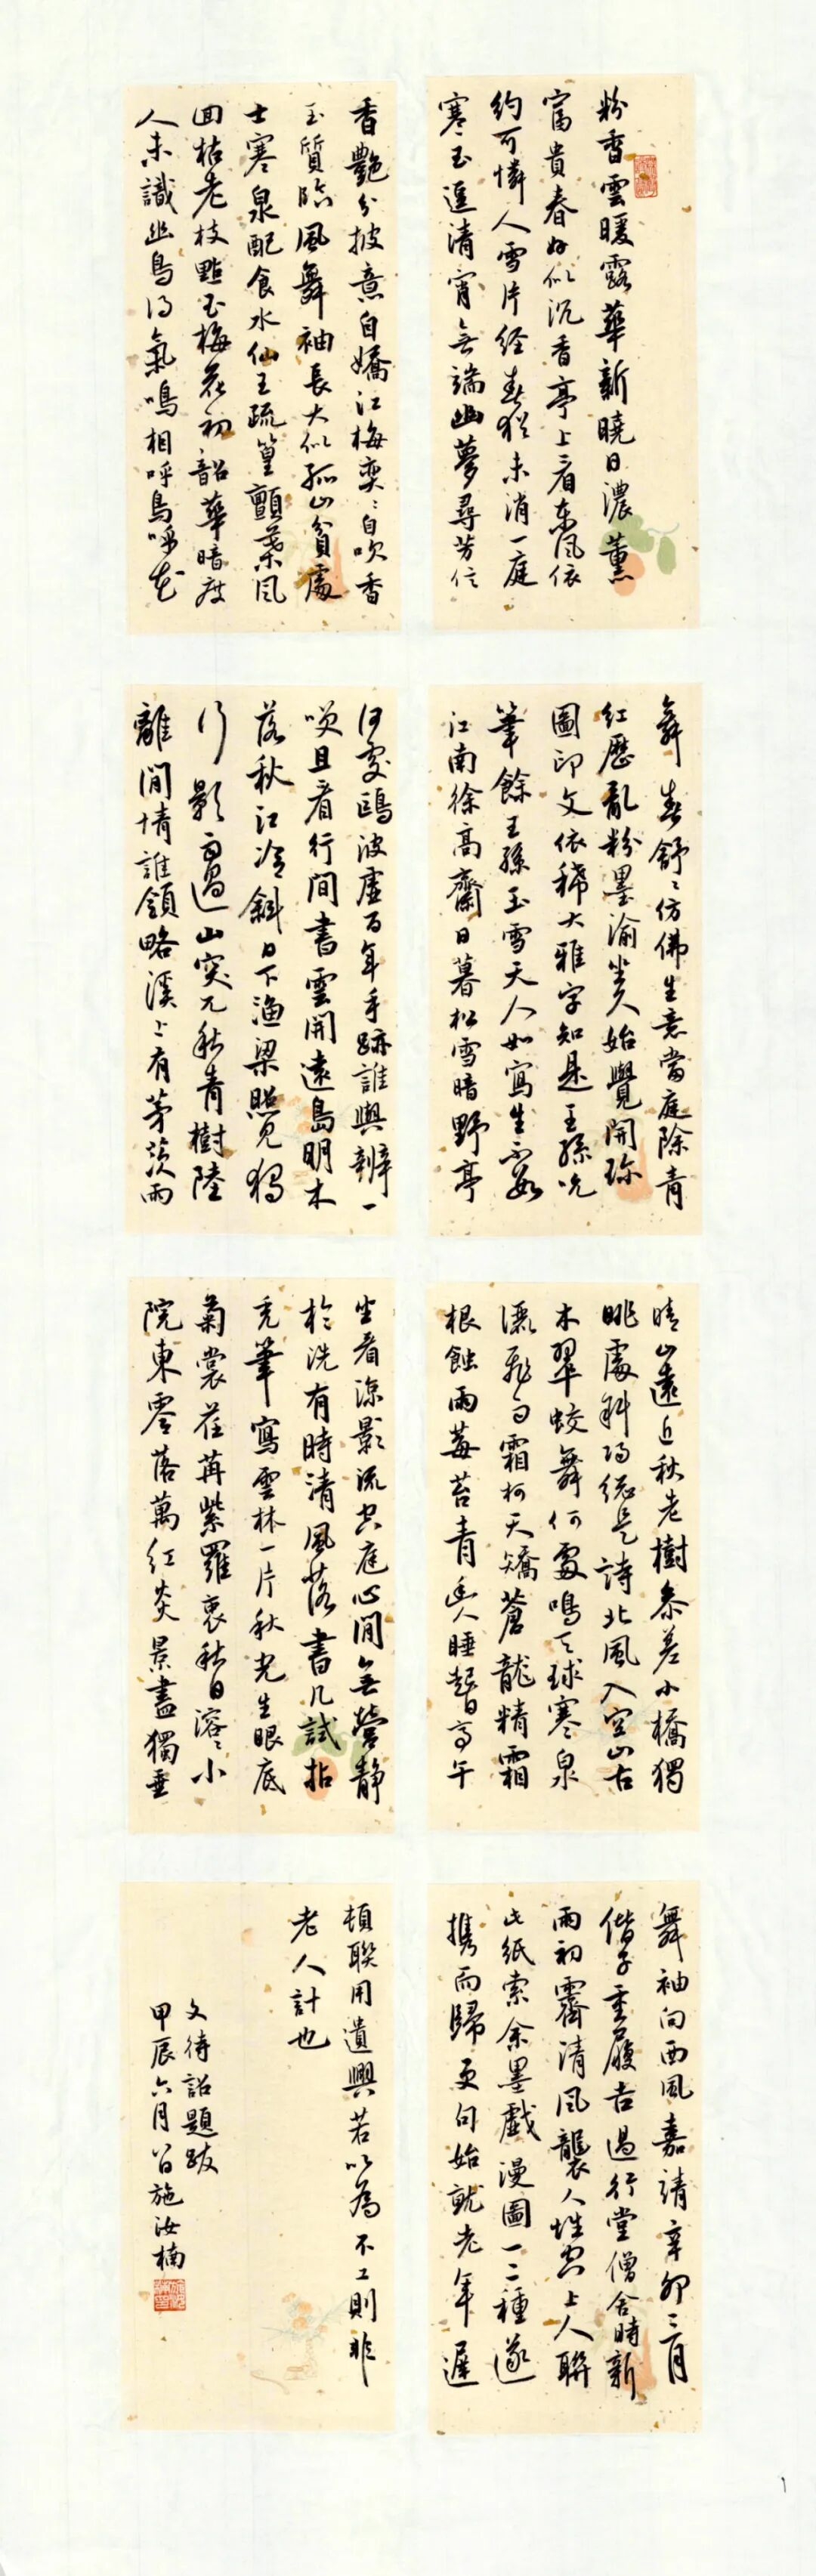 粉香雲暖露華新曉日濃薰
富貴春好似沉香亭上看東風依
約可憐人雪片經春猶未消一庭
寒玉逗清宵無端幽夢尋芳信
香艷分披意自嬌江梅奕〻自吹香
玉質臨風舞袖長大似孤山貧處
士寒泉配食水仙王疏篁顫葉風
回枯老枝點玉梅花初韶華暗度
人未識幽鳥得氣鳴相呼鳥呼花
舞春舒〻仿佛生意當庭除青
紅歷亂粉墨渝坐久始覺開珍
圖印文依稀大雅字知是王孫吮
筆餘王孫玉雪天人如寫生不數
江南徐高齋日暮松雪暗野亭
何處鷗波虛百年手跡誰與辨一
笑且看行間書雲開遠島明木
落秋江冷斜日下漁梁照見獨
行影雨過山突兀秋青樹陸
離閒情誰領略溪上有茅茨雨
晴山遠近秋老樹參差小橋獨
眺處料得總是詩北風入空山古
木翠蛟舞何處鳴天球寒泉
瀑飛雨霜柯夭矯蒼龍精霜
根蝕雨莓苔青幽人睡起日高午
坐看涼影流空庭心閒無營靜
於洗有時清風落書几試拈
禿筆寫雲林一片秋光生眼底
菊裳荏苒紫羅衷秋日溶〻小
院東零落萬紅炎景盡獨垂
舞袖向西風嘉靖辛卯二月
偕子重履吉過行堂僧舍時新
雨初霽清風襲人性空上人聯
此紙索余墨戲漫圖一二種遂
攜而歸更句始就老年遲
頓聊用遣興若以為不工則非
老人計也
文待詔題跋
甲辰六月 施汝楠